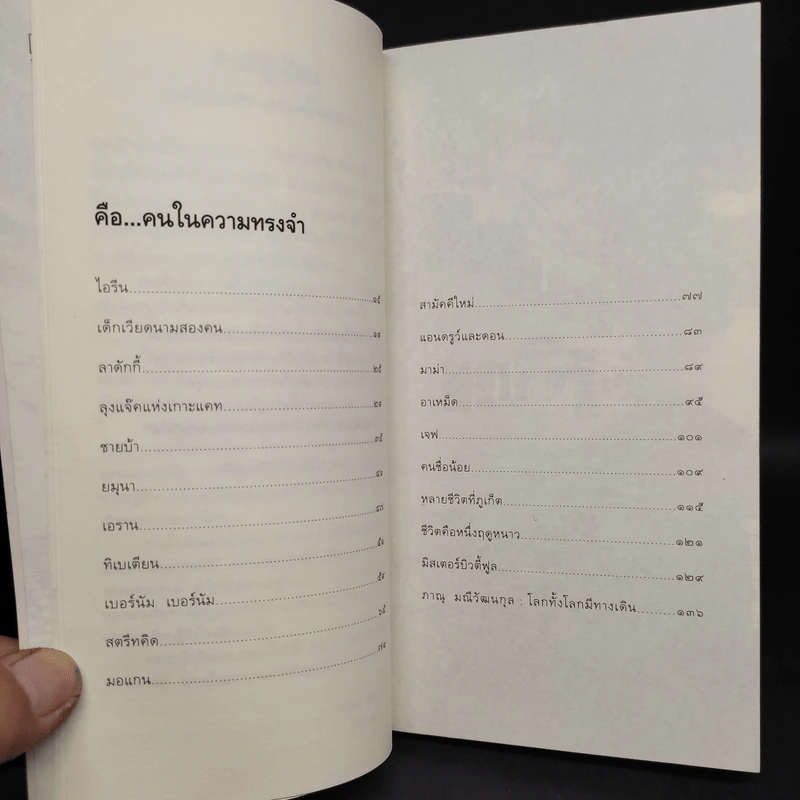 คือ...คนในความทรงจำ
ไอรีน
เด็กเวียดนามสองคน
ลาดักกี้
ลุงแจ๊คแห่งเกาะแคท
ชายบ้า
ยมุนา
เอราน
ทิเบเตียน
เบอร์นัม เบอร์นัม
สตรีทคิด
มอแกน
สามัคคีใหม่ ๗๗
แอนดรูว์และดอน ๘๓
มาม่า ๘๙
อาเหม็ด ๙๕
เจฟ ๑๐๑
คนชื่อน้อย ๑๐๙
หลายชีวิตที่ภูเก็ต ๑๑๕
ชีวิตคือหนึ่งฤดูหนาว ๑๒๑
มิสเตอร์บิวตี้ฟูล ๑๒๙
ภาณุ มณีวัฒนกุล : โลกทั้งโลกมีทางเดิน ๑๓๖